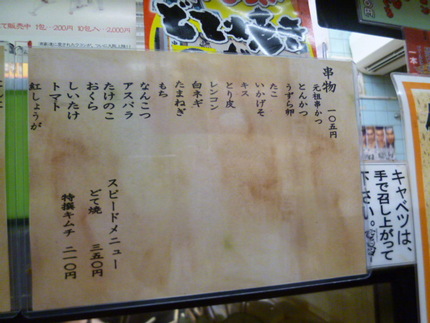 て販売中 1包…200円 10包入…2,000円
串物 一〇五円
元祖串かつ
とんかつ
うずら卵
たこ
いかげそ
キス
とり皮
レンコン
白ネギ
たまねぎ
もち
なんこつ
アスパラ
たけのこ
おくら
しいたけ
トマト
紅しょうが
スピードメニュー
どて焼 三五〇円
特撰キムチ 二一〇円
キャベツは、
手で召し上がって
下さい。